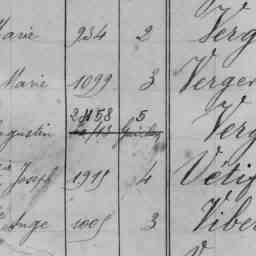 Marie 934 2 Verg
Marie 1099 3 Verger
2458 5
Augustin Verg
Joseph 1919 4 Vetig
Ange 1005 3 Viber